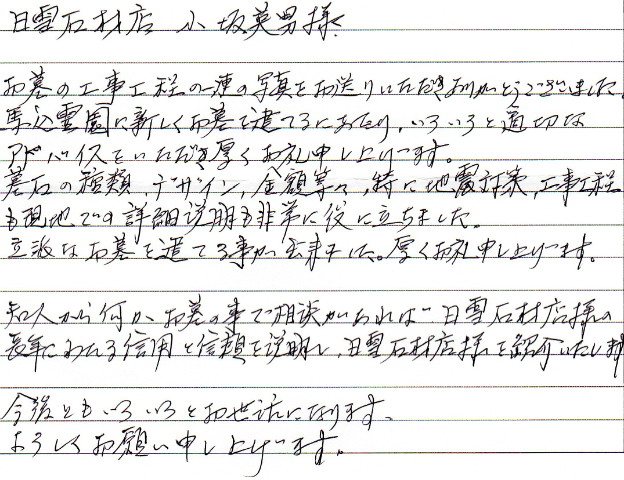 日雲石材店 小坂英男様
お墓の工事工程の一連の写真をお送りいただきありがとうございました
馬込霊園に新しくお墓を建てるにあたり、いろいろと適切な
アドバイスをいただき厚くお礼申し上げます。
墓石の種類、デザイン、金額等々、特に地震対策、工事工程
も現地での詳細説明も非常に役に立ちました。
立派なお墓を建てる事が出来ました。厚くお礼申し上げます。
知人から何かお墓の事で相談があれば日雲石材店様の
長年にわたる信用と信頼を説明し、日雲石材店様を紹介いたします
今後ともいろいろとお世話になります、
よろしくお願い申し上げます。